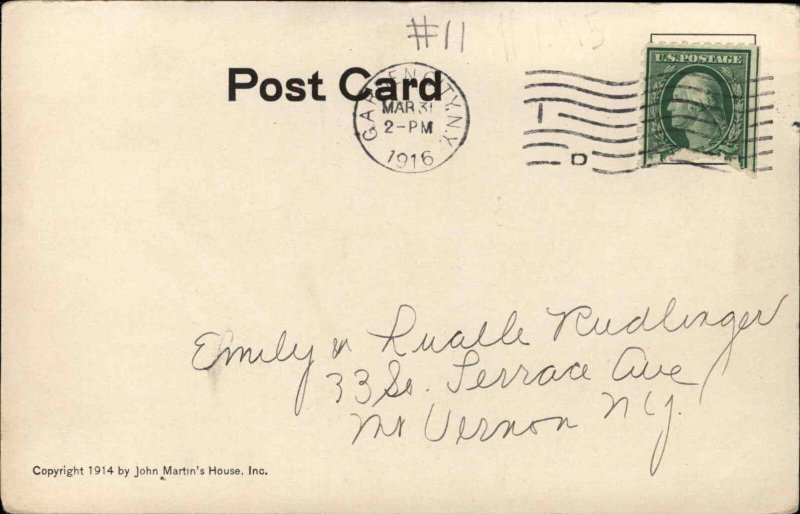 #11
Post Card
GARDEN CITY, N.Y.
MAR 31
2-PM
1916
U.S. POSTAGE
Emily & Rualle Rudlinger
33 So. Terrace Ave
Mt Vernon N.Y.
Copyright 1914 by John Martin's House, Inc.